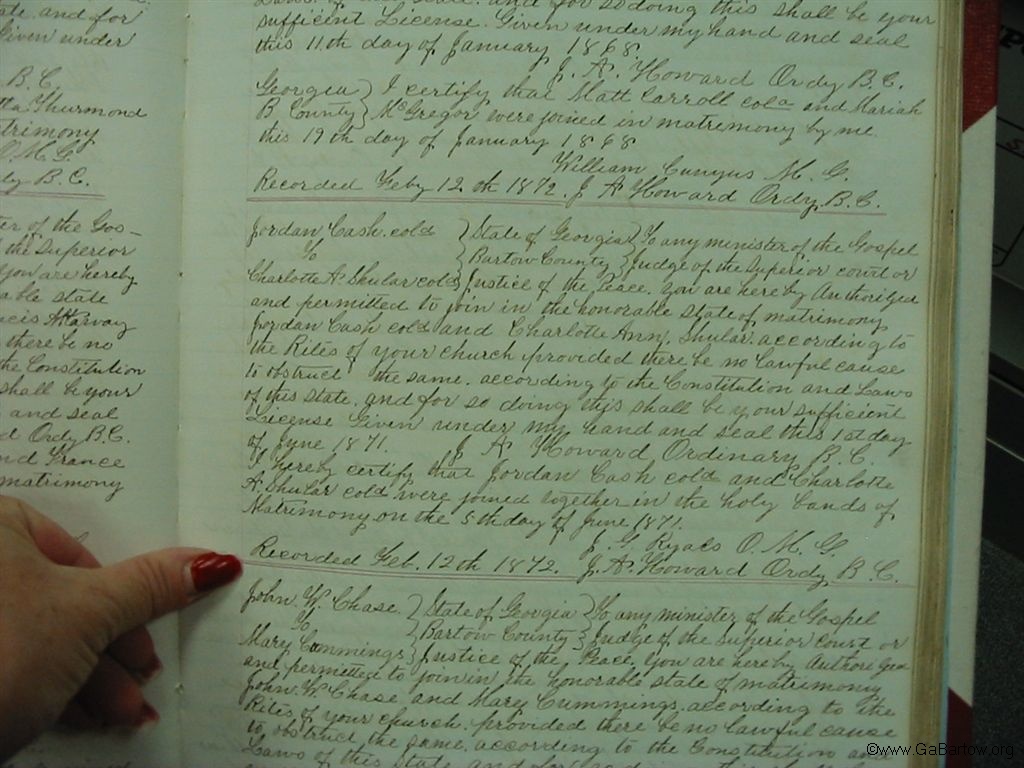 ate and for
Given under
B. C.
tta Thurmond
trimony
O. M. G.
dy B. C.
ter of the Gos-
the Superior
you are hereby
able state
there be no
the Constitution
shall be your
and seal
d Ordy B.C.
nd France
matrimony
Laws of this State. and for so doing this shall be your
sufficient License. Given under my hand and seal
this 11th day of January 1868
J. A. Howard Ordy B. C.
Georgia } I certify that Matt Carroll cold and Mariah
B County } McGregor were joined in matrimony by me
this 19th day of January 1868
William Cunyus M. G.
Recorded Feby 12th 1872. J A Howard Ordy. B. C.
Jordan Cash. cold } State of Georgia } To any minister of the Gospel
To } Bartow County } Judge of the Superior court or
Charlotte A. Shular cold } Justice of the Peace. You are hereby Authorized
and permitted to join in the honorable state of matrimony
Jordan Cash cold and Charlotte Ann, Shular. according to
the Rites of your church provided there be no lawful cause
to obstruct the same. according to the Constitution and Laws
of this State. and for so doing this shall be your sufficient
License Given under my hand and seal this 1st day
of June 1871. J A Howard Ordinary B. C.
I hereby certify that Jordan Cash cold and Charlotte
A. Shular cold were joined together in the holy bands of
Matrimony on the 5th day of June 1871.
J. G. Ryals O. M. G.
Recorded Feb. 12th 1872. J. A. Howard Ordy B. C.
John W. Chase } State of Georgia } To any minister of the Gospel
To } Bartow County } Judge of the Superior Court or
Mary Cummings } Justice of the Peace. You are hereby
and permitted to join in the honorable state of matrimony
John W Chase and Mary Cummings. according to the
Rites of your church. provided there be no lawful cause
to obstruct the same. according to the Constitution and
Laws of this State and for
©www.GaBartow.org